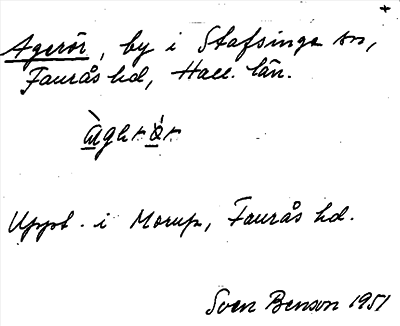 Agerör, by i Stafsinge sn,
Faurås hd, Hall. län.
àgərǿr
Uppt. i Morup, Faurås hd.
Sven Benson 1951